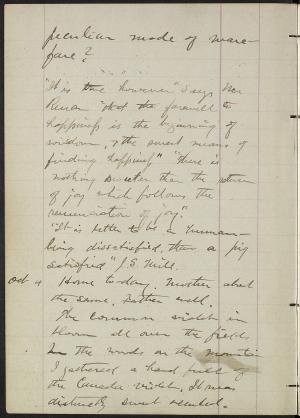 peculiar mode of ware-
fare?
"It is true however" says Mr
Renan "that the farewell to
happiness is the beginning of
wisdom, & the surest means of
finding happiness" "there is
nothing sweeter than the return
of joy which follows the
renunciation of joy."
"It is better to be a human-
being dissatisfied, than a pig
satisfied" J. S. Mill.
Oct 4 Home to day. Mother about
the same, Father well.
The common violet in
bloom all over the fields
In the woods on the mountain
I gathered a hand full of
the Canada violet, it was
distinctly sweet scented.